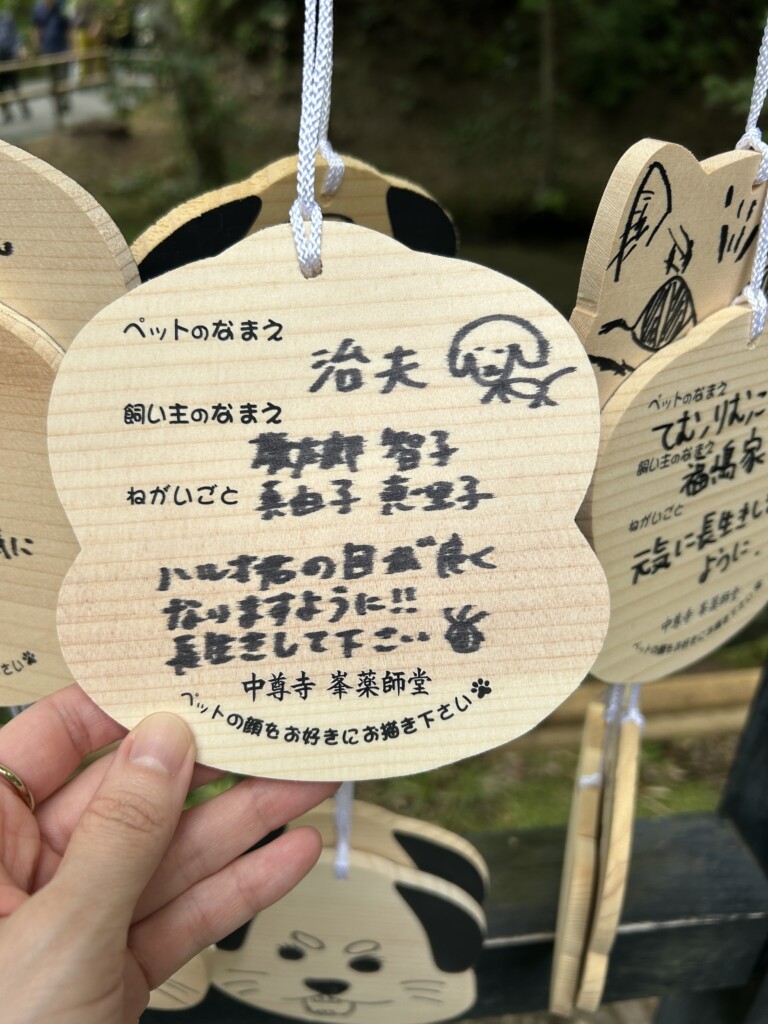 ペットのなまえ
治夫
飼い主のなまえ
智子
ねがいごと 真由子 真里子
ハルオ君の目が良く
なりますように!!
長生きして下さい
中尊寺 峯薬師堂
ペットの顔をお好きにお描き下さい
ペットのなまえ
てむ、りむに
飼い主のなまえ
福嶋家
ねがいごと
元気に長生きし
ように.
中尊寺 峯薬師堂
ペットの顔をお好きにお描き下さい
に
さい